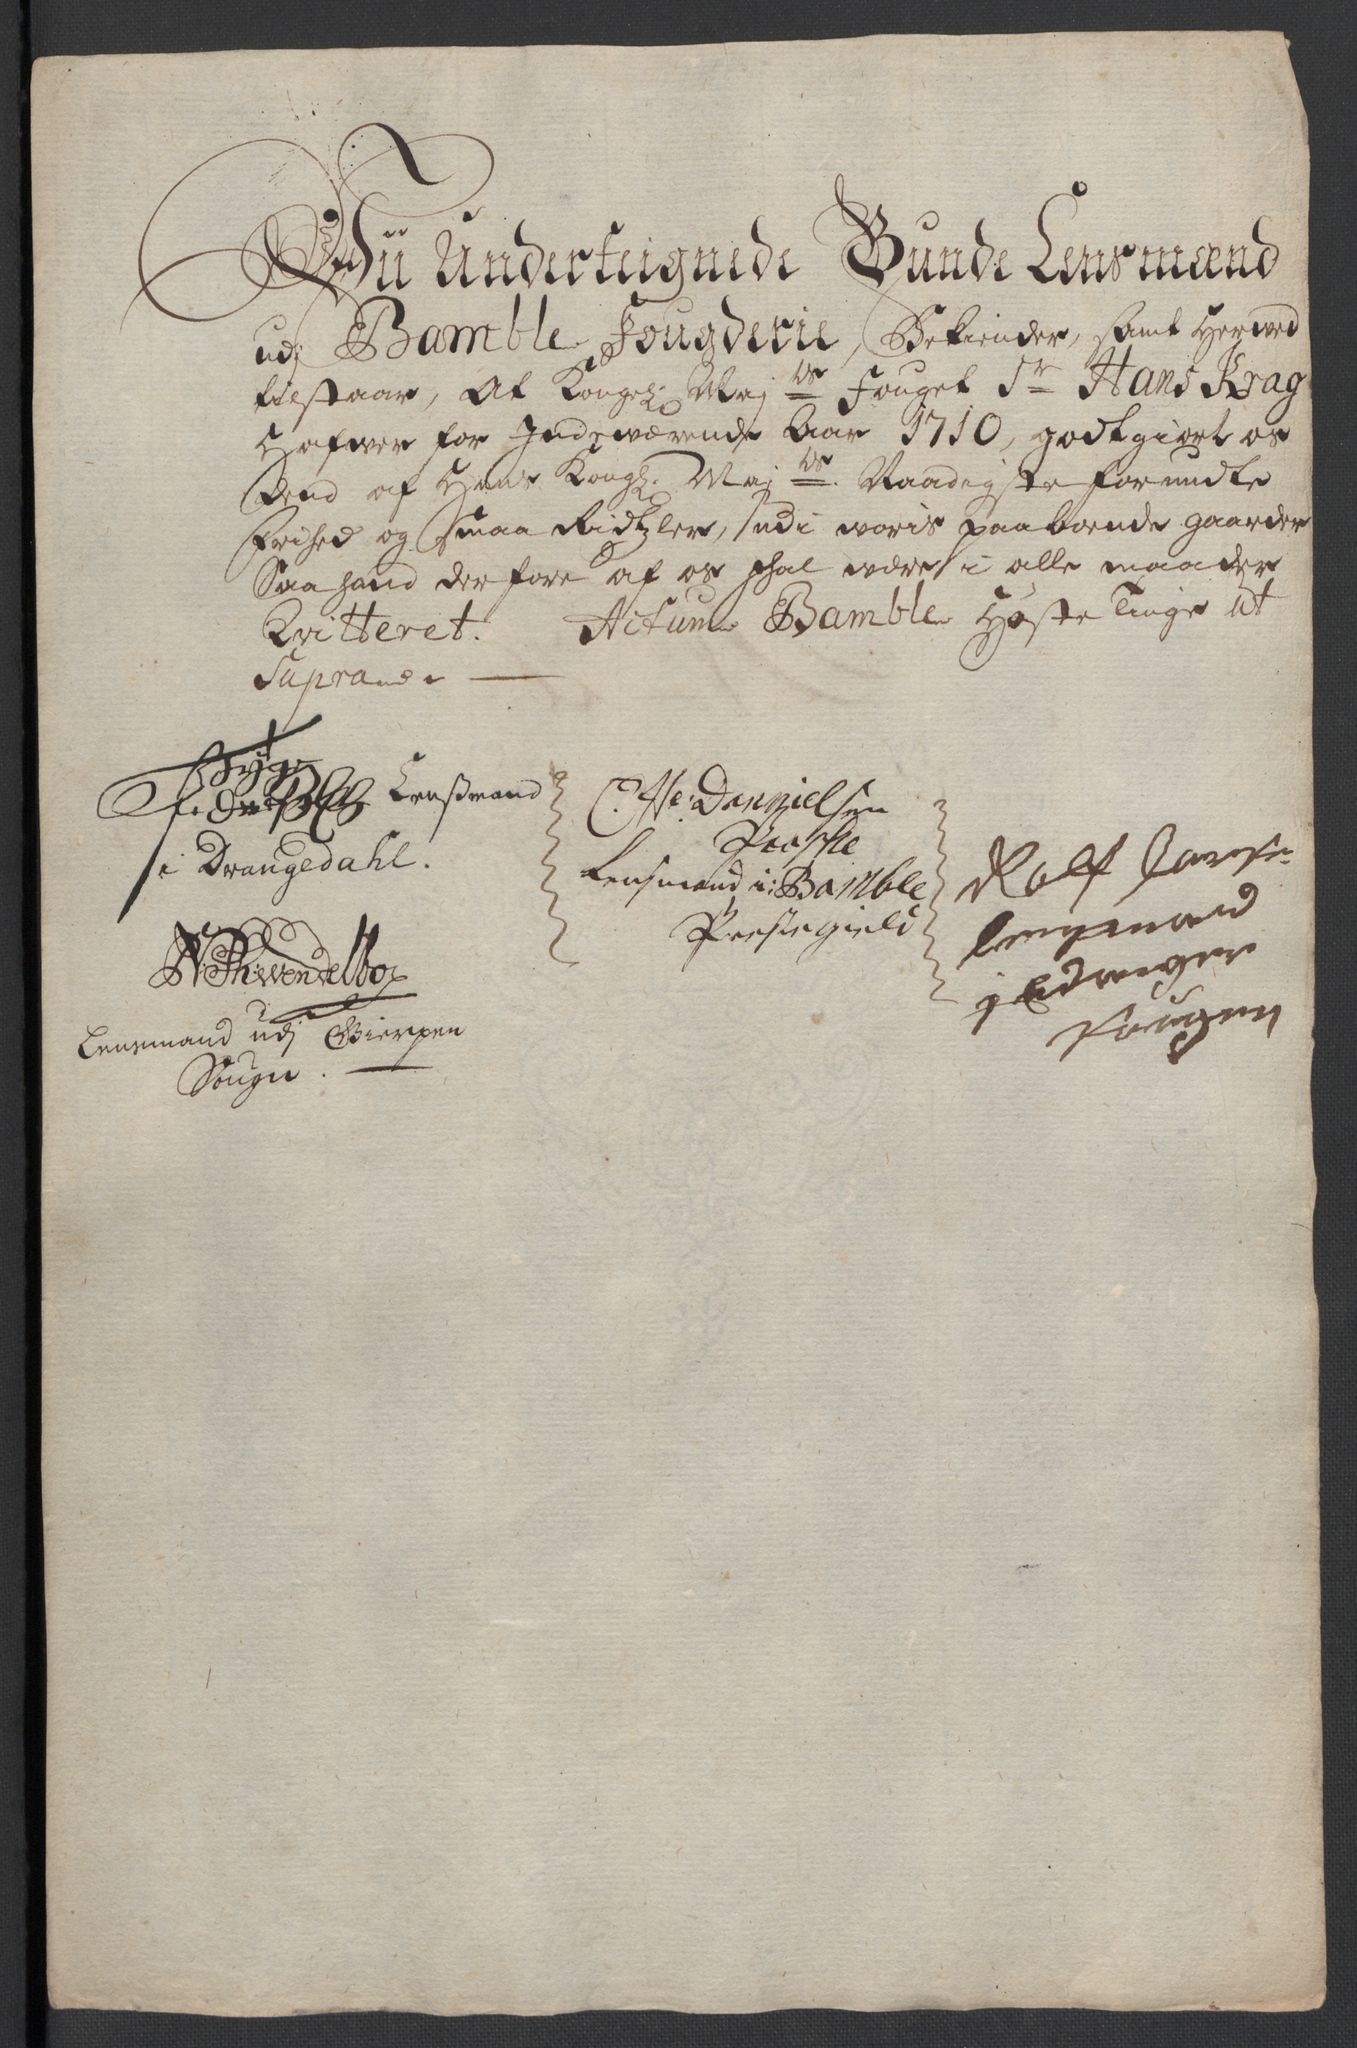 Wii Underteignede Bunde Lensmænd
udj Bamble Fougderie, Bekiender, samt Herved
tilstaar, At Kongel: Maj:ts Fouget Sr Hans Krag
Hafver for Indeværende Aar 1710, godtgiort os
dend af Hans Kongl: Maj:ts Naadigste forundte
Frihed og Smaa Ridtzler, udi woris paaboende gaarder
Saa hand derfore af os schal være i alle maader
Qvitteret. Actum Bamble Høste Tinge ut
Supra
Lensmand
i Drangedahl.
N: Th: Wendelboe
Lensmand udj Gierpen
Sougn.
Otte: Danielsen
Lensmand i: Bamble
Prestegield
Rolf
lensmand
i Edanger
Sougen